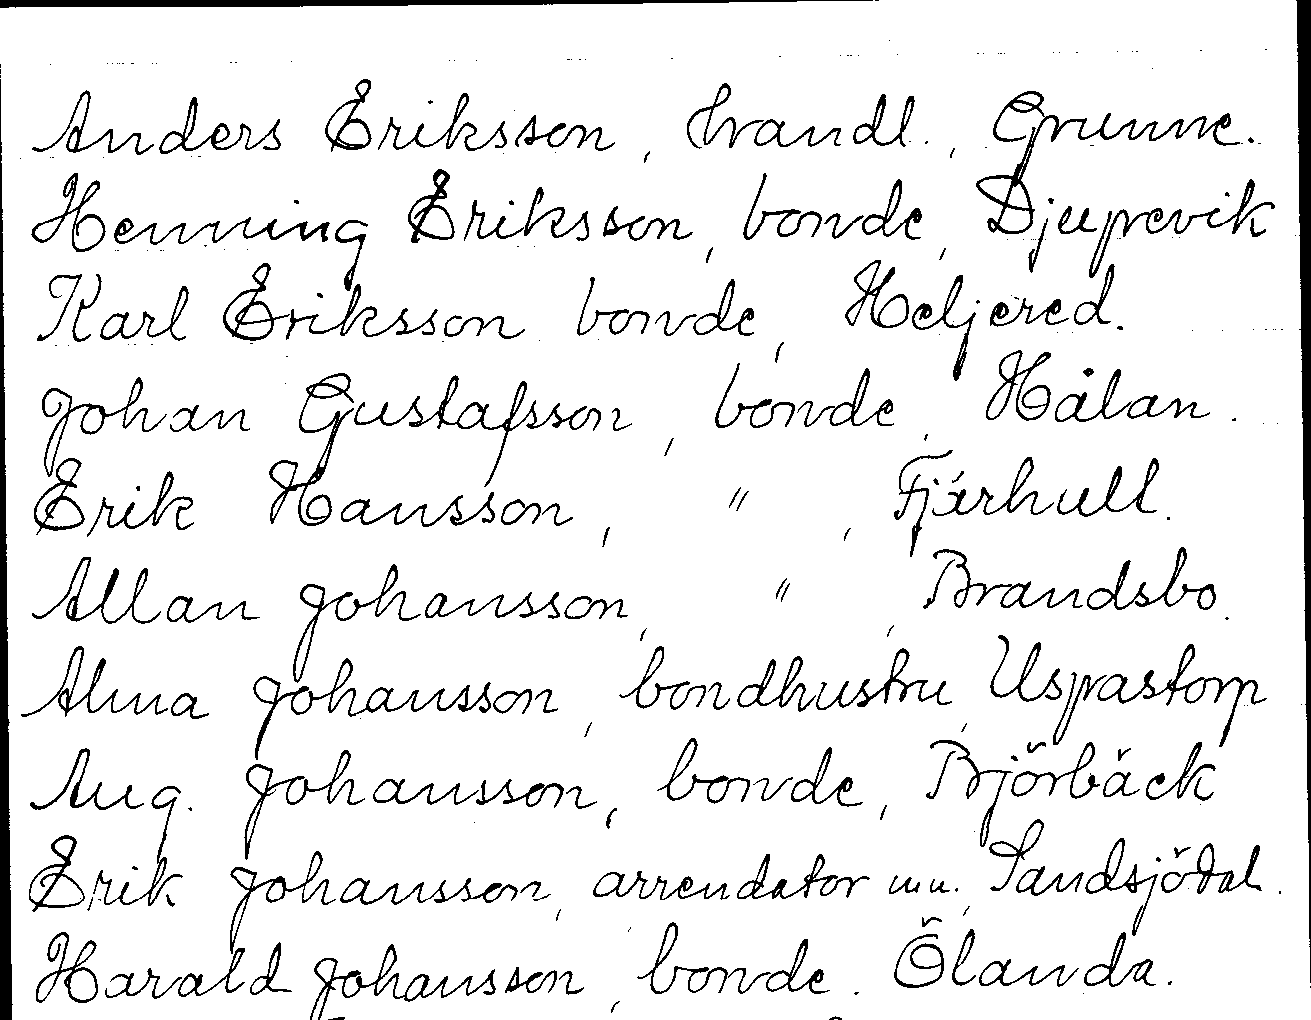 Anders Eriksson, handl., Grunne.
Henning Eriksson, bonde, Djupevik
Karl Eriksson bonde, Heljered.
Johan Gustafsson, bonde, Hålan.
Erik Hansson, " , Fjärhult.
Allan Johansson, " , Brandsbo.
Alma Johansson, bondhustru, Uspastorp
Aug. Johansson, bonde, Björbäck
Erik Johansson, arrendator m.m. Sandsjödal.
Harald Johansson, bonde. Ölanda.